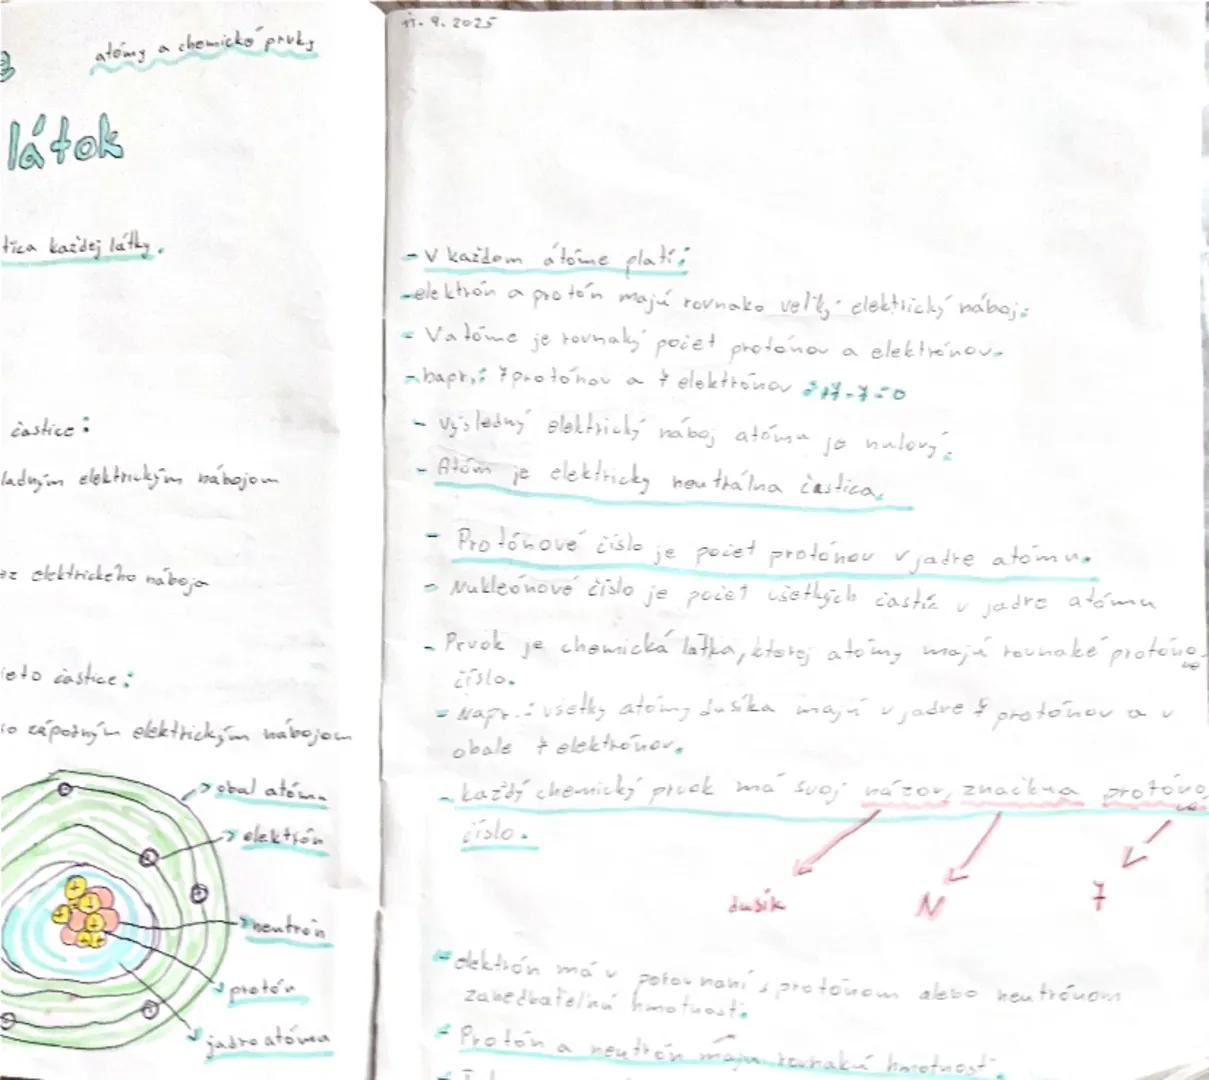 atómy a chemické prvky
látok
tica každej látky.
častice:
ladným elektrickým nábojom
ez elektrického náboja
ieto častice:
so záporným elektrickým nábojom
obal atómu
elektrón
neutrón
protón
jadro atóma
11. 9. 2025
- V každom átóme platí:
- elektrón a protón majú rovnako veľký elektrický náboj:
- V atóme je rovnaký počet protónov a elektrónov.
- napr.: 7 protónov a 7 elektrónov : +7-7=0
- výsledný elektrický náboj atómu je nulový.
- Atóm je elektricky neutrálna častica.
- Protónové číslo je počet protónov v jadre atómu.
- Nukleónové číslo je počet všetkých častíc v jadre atómu
- Prvok je chemická látka, ktorej atómy majú rovnaké protóno
vé
číslo.
- Napr.: všetky atómy dusíka majú v jadre 7 protónov a v
obale 7 elektrónov.
- každý chemický prvok má svoj názov, značku a protóno
vé
číslo.
dusík N 7
- elektrón má v porovnaní s protónom alebo neutrónom
zanedbateľnú hmotnosť.
- Protón a neutrón majú rovnakú hmotnosť.